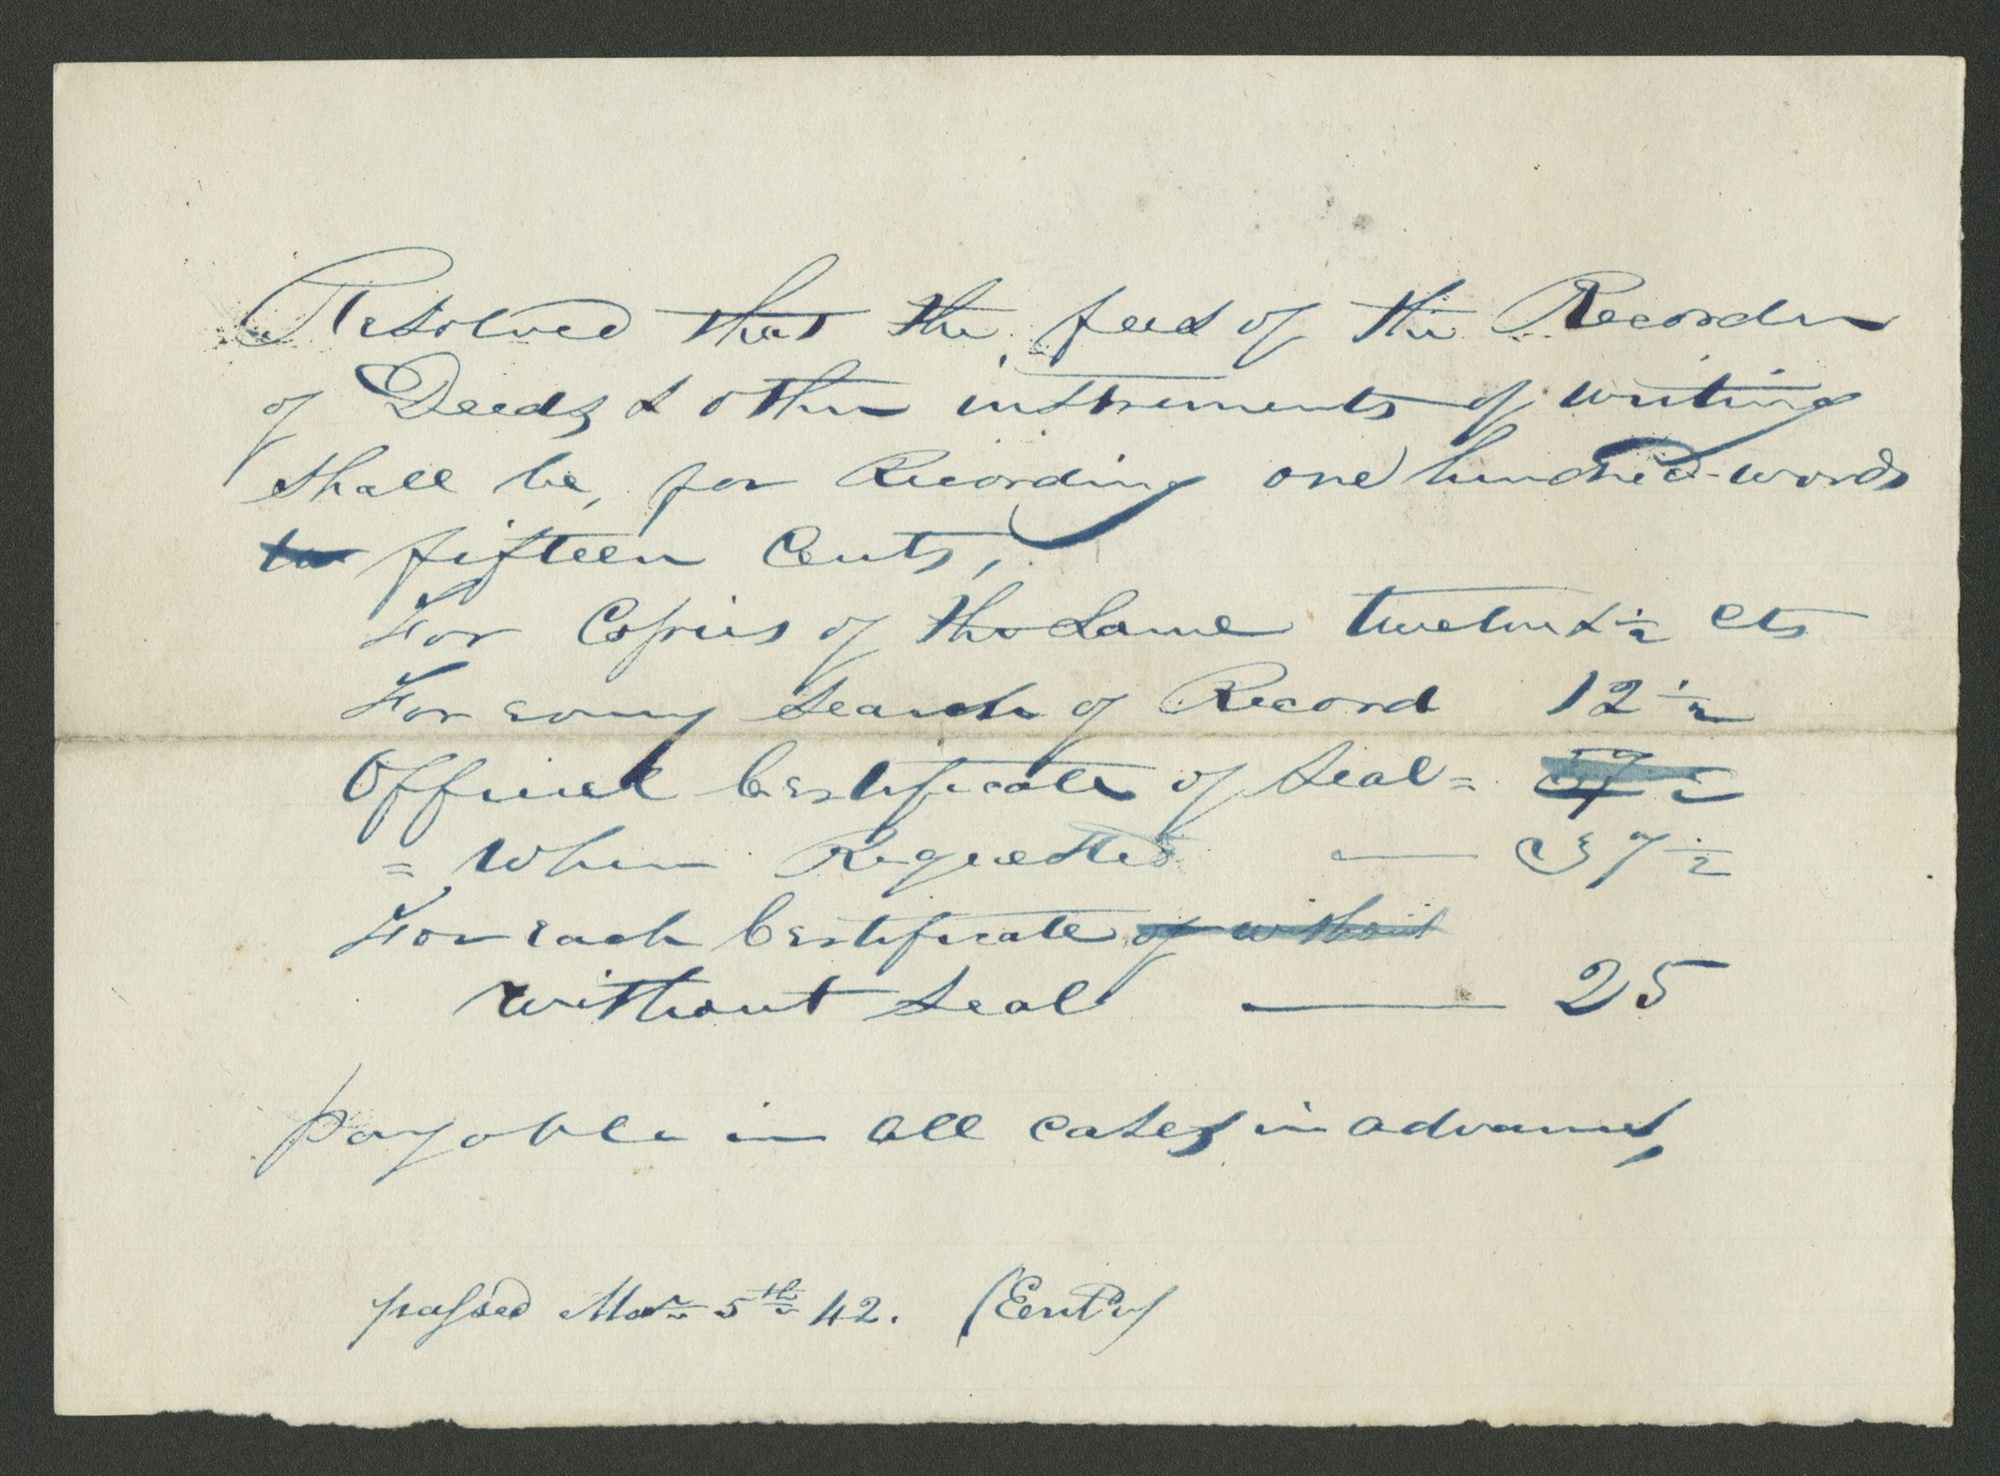 Resolved that the fees of the Recorder
of Deeds & other instruments of writing
shall be, for Recording one hundred words
to fifteen Cents,
For Copies of the same twelve & 1/2 Cts
For every Search of Record 12 1/2
Official Certificate of Seal = 37 1/2
= When Requested — 37 1/2
For each Certificate of without
without Seal — 25
payable in all cases in advance,
passed Mar 5th 42.